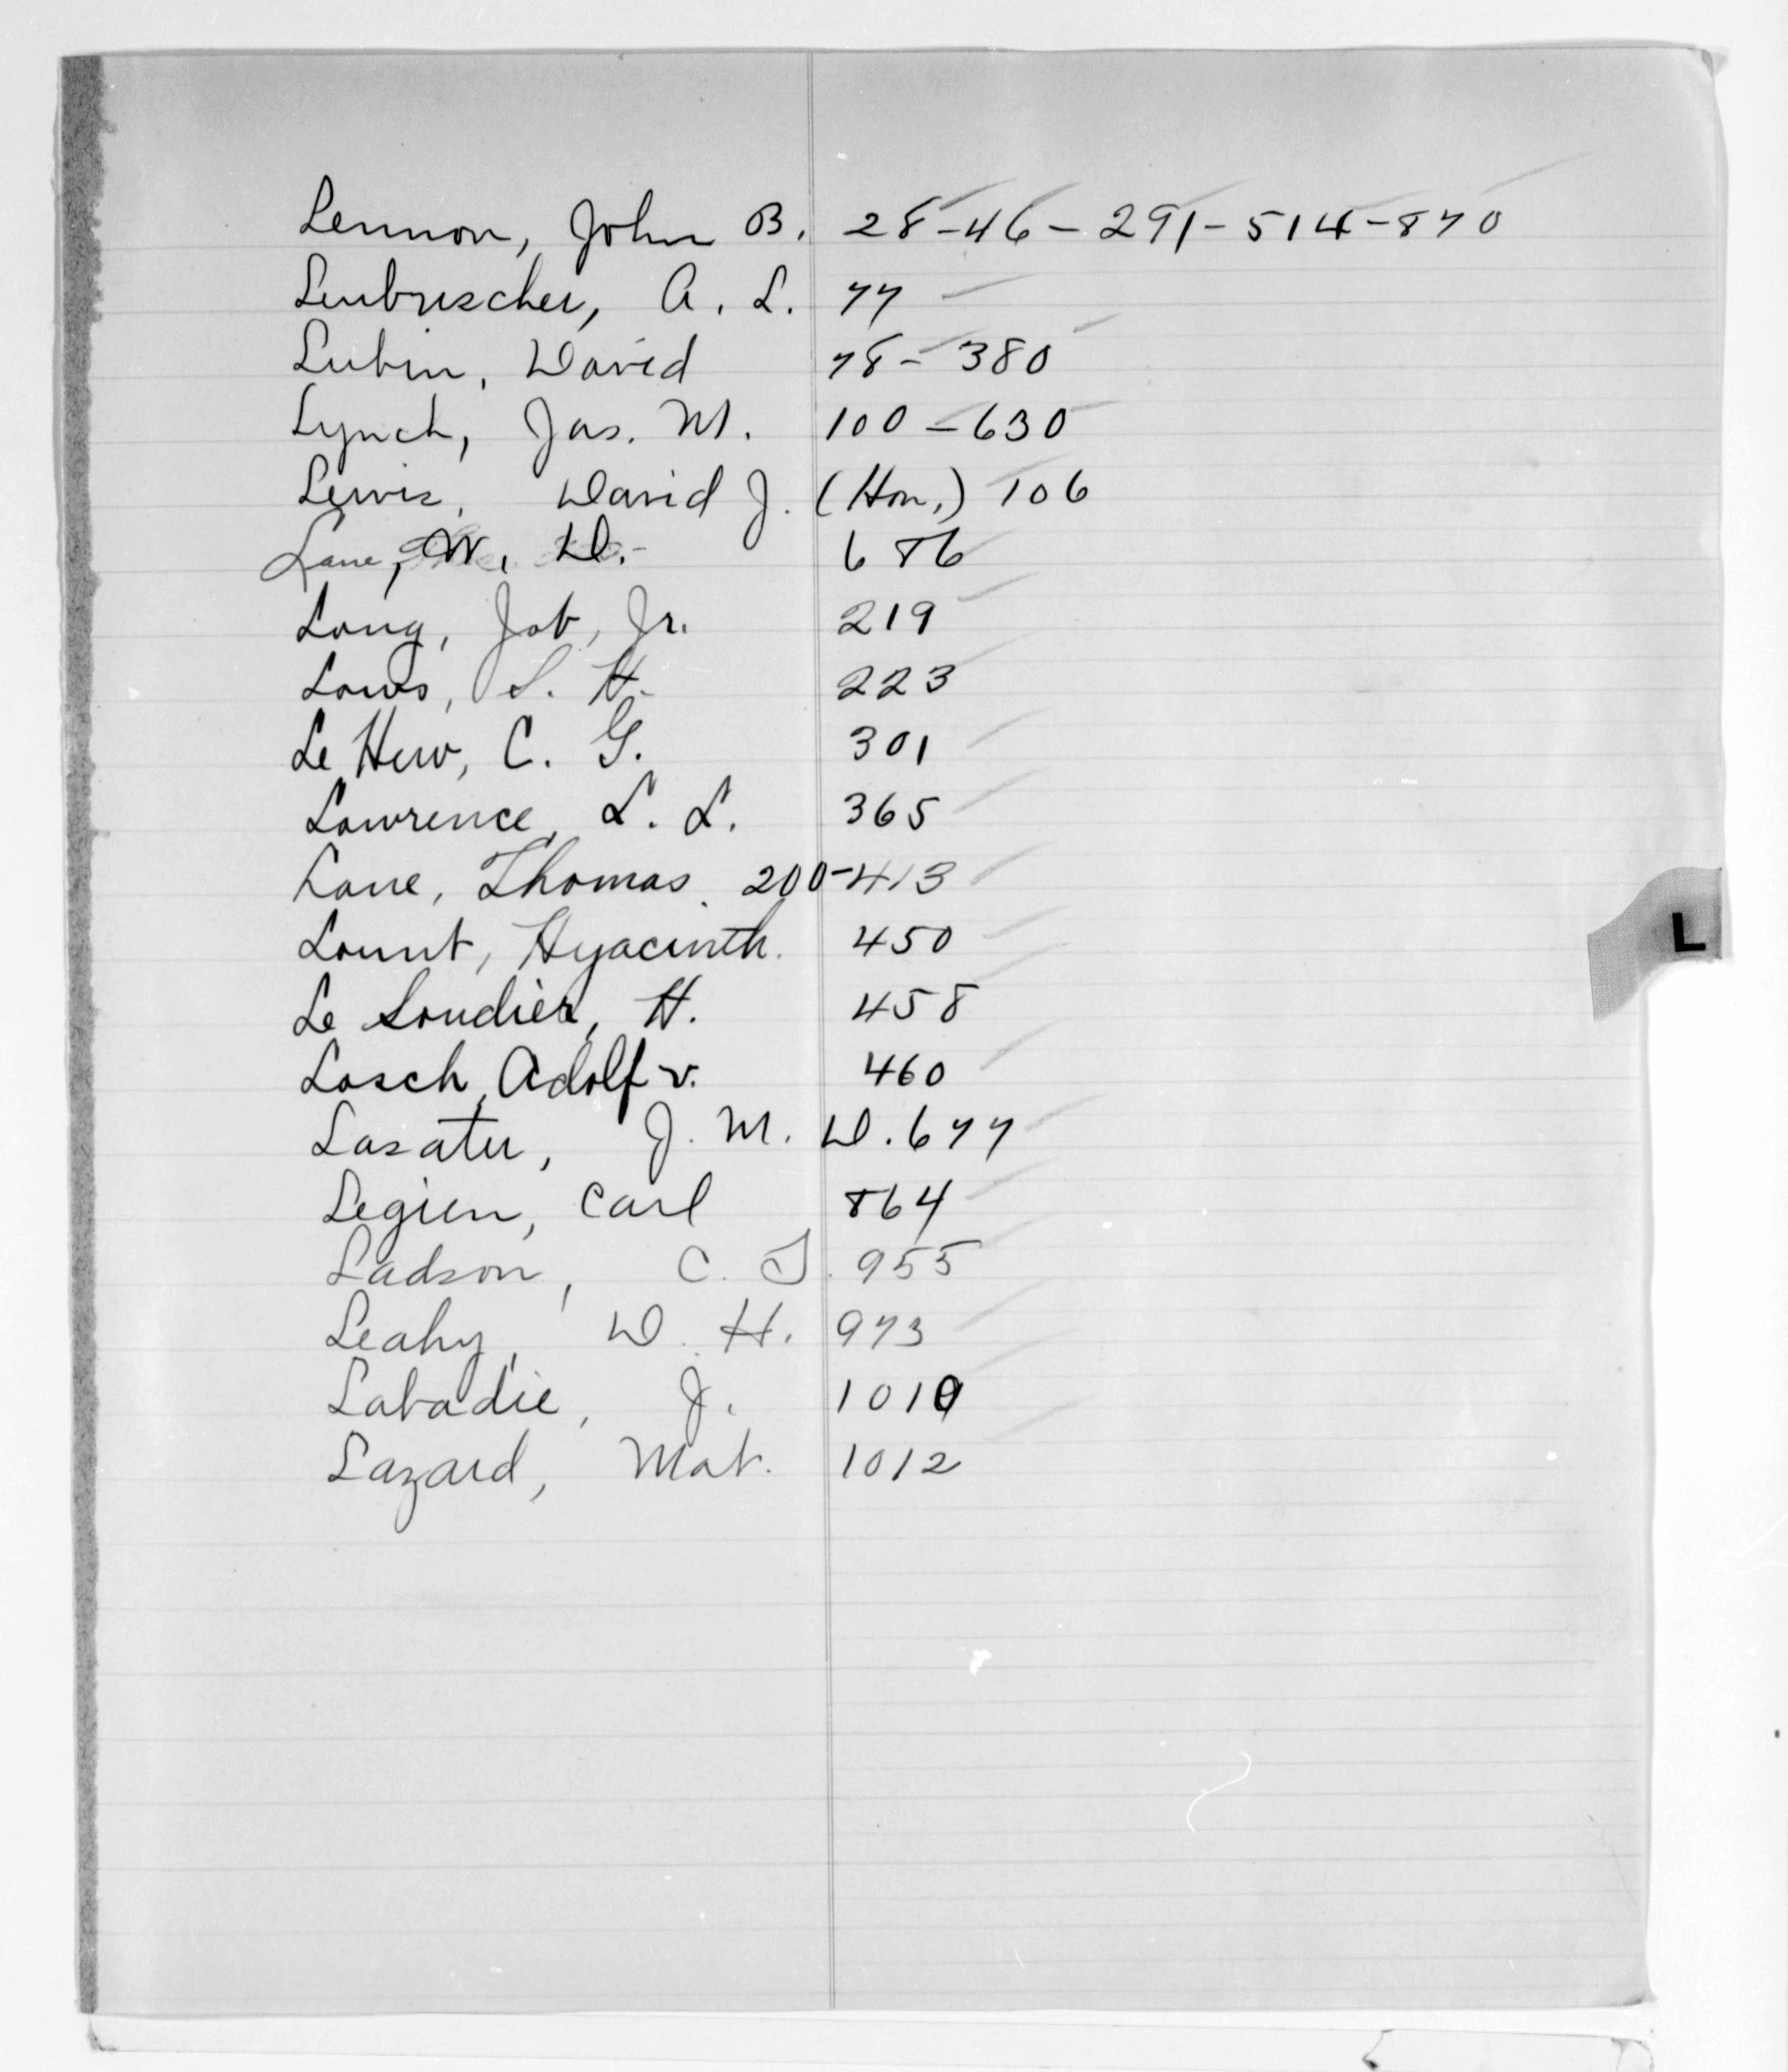 Lennon, John B. 28-46-291-514-870
Leubuscher, A. L. 77
Lubin, David 78-380
Lynch, Jas. M. 100-630
Lewis, David J. (Hon.) 106
Lane, W. D. 686
Long, Job, Jr. 219
Lows, S. H. 223
Le Hew, C. G. 301
Lawrence, L. L. 365
Lane, Thomas. 200-413
Lount, Hyacinth. 450
Le Soudier, H. 458
Losch, Adolf v. 460
Lasater, J. M. D. 677
Legien, Carl 864
Ladson, C. T. 955
Leahy, D. H. 973
Labadie, J. 1010
Lazard, Mat. 1012
L